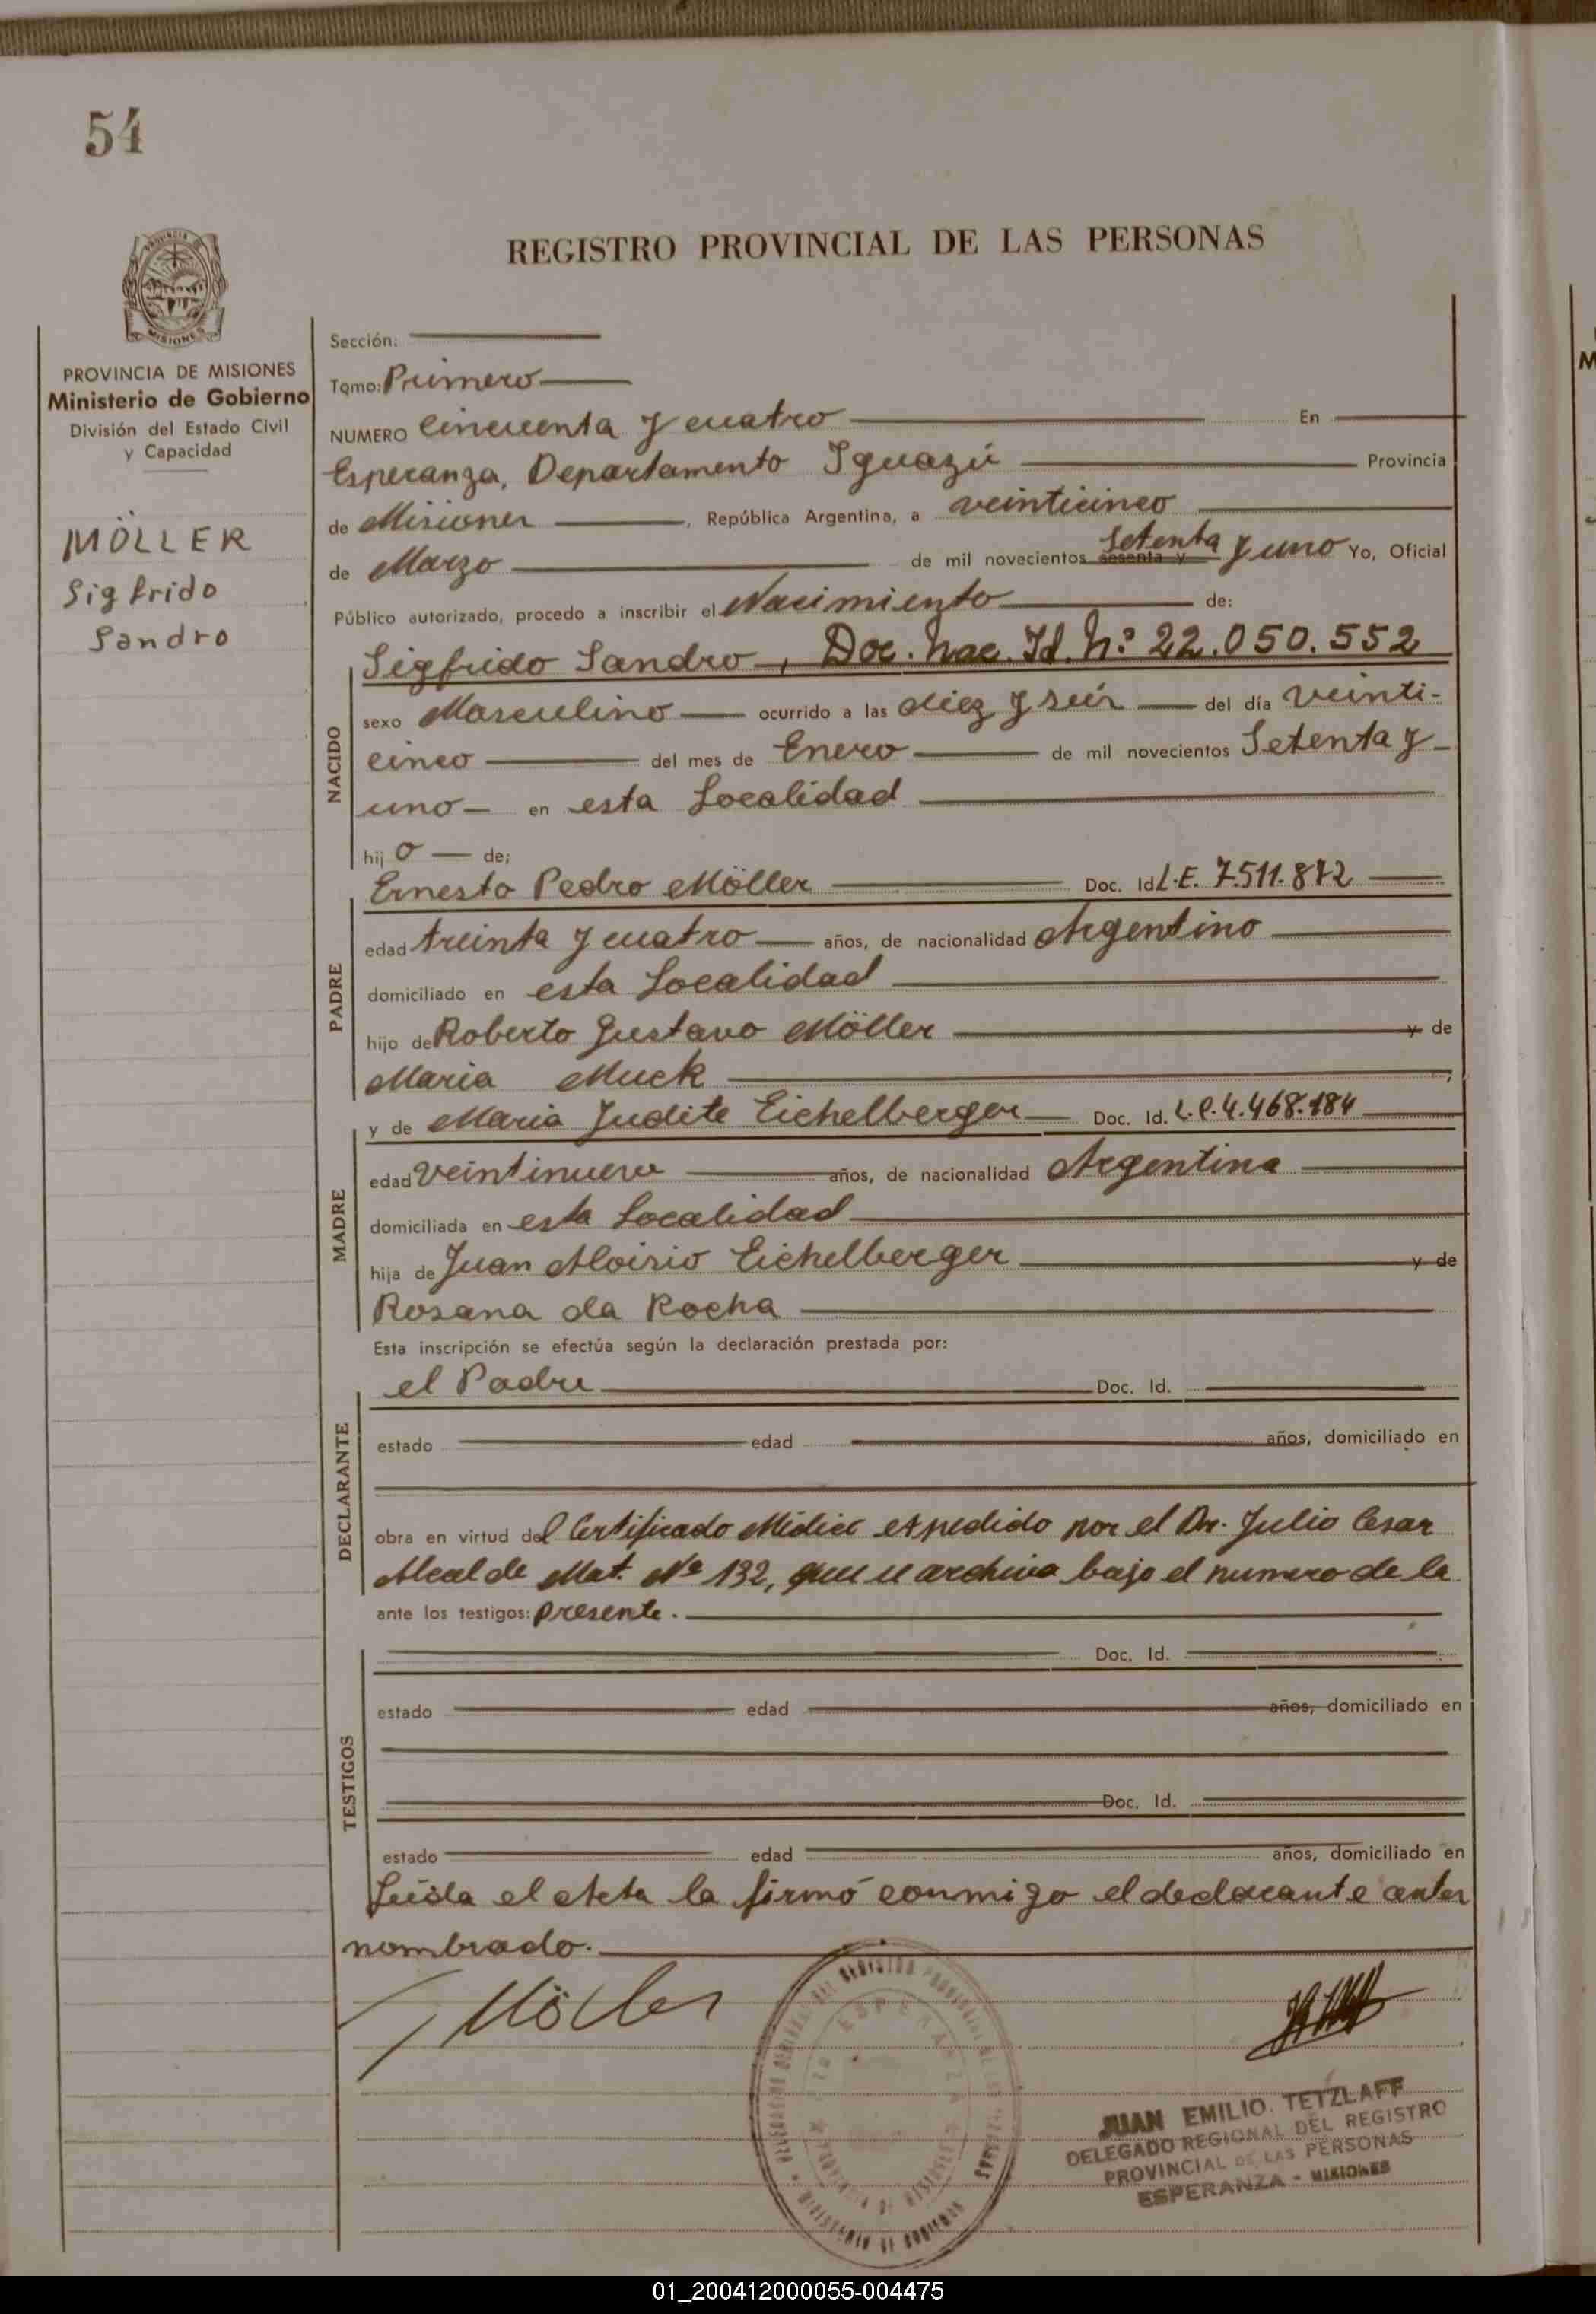 54
REGISTRO PROVINCIAL DE LAS PERSONAS
MISIONES
PROVINCIA DE MISIONES
Ministerio de Gobierno
División del Estado Civil
y Capacidad
MÖLLER
Sigfrido
Sandro
Sección:
Tomo: Primero
NUMERO Cincuenta y cuatro En
Esperanza, Departamento Iguazú Provincia
de Misiones, República Argentina, a veinticinco
de Marzo de mil novecientos sesenta y Setenta y uno Yo, Oficial
Público autorizado, procedo a inscribir el Nacimiento de:
Sigfrido Sandro, Doc. Nac. Id. Nº 22.050.552
NACIDO
sexo Masculino ocurrido a las diez y seis del día Veinti-
cinco del mes de Enero de mil novecientos Setenta y
uno en esta Localidad
hijo de;
PADRE
Ernesto Pedro Möller Doc. Id L.E. 7.511.872
edad treinta y cuatro años, de nacionalidad Argentino
domiciliado en esta Localidad
hijo de Roberto Gustavo Möller y de
Maria Muck
MADRE
y de Maria Judite Eichelberger Doc. Id. L.C. 4.468.184
edad veintinueve años, de nacionalidad Argentina
domiciliada en esta Localidad
hija de Juan Aloisio Eichelberger y de
Rosana da Rocha
Esta inscripción se efectúa según la declaración prestada por:
DECLARANTE
el Padre Doc. Id.
estado edad años, domiciliado en
obra en virtud del Certificado Médico expedido por el Dr. Julio Cesar
Alcalde Mat. Nº 132, que se archiva bajo el numero de la
ante los testigos: presente.
TESTIGOS
Doc. Id.
estado edad años, domiciliado en
Doc. Id.
estado edad años, domiciliado en
Leída el Acta la firmó conmigo el declarante antes
nombrado.
Möller
ESPERANZA
JUAN EMILIO TETZLAFF
DELEGADO REGIONAL DEL REGISTRO
PROVINCIAL DE LAS PERSONAS
ESPERANZA - MISIONES
01_200412000055-004475